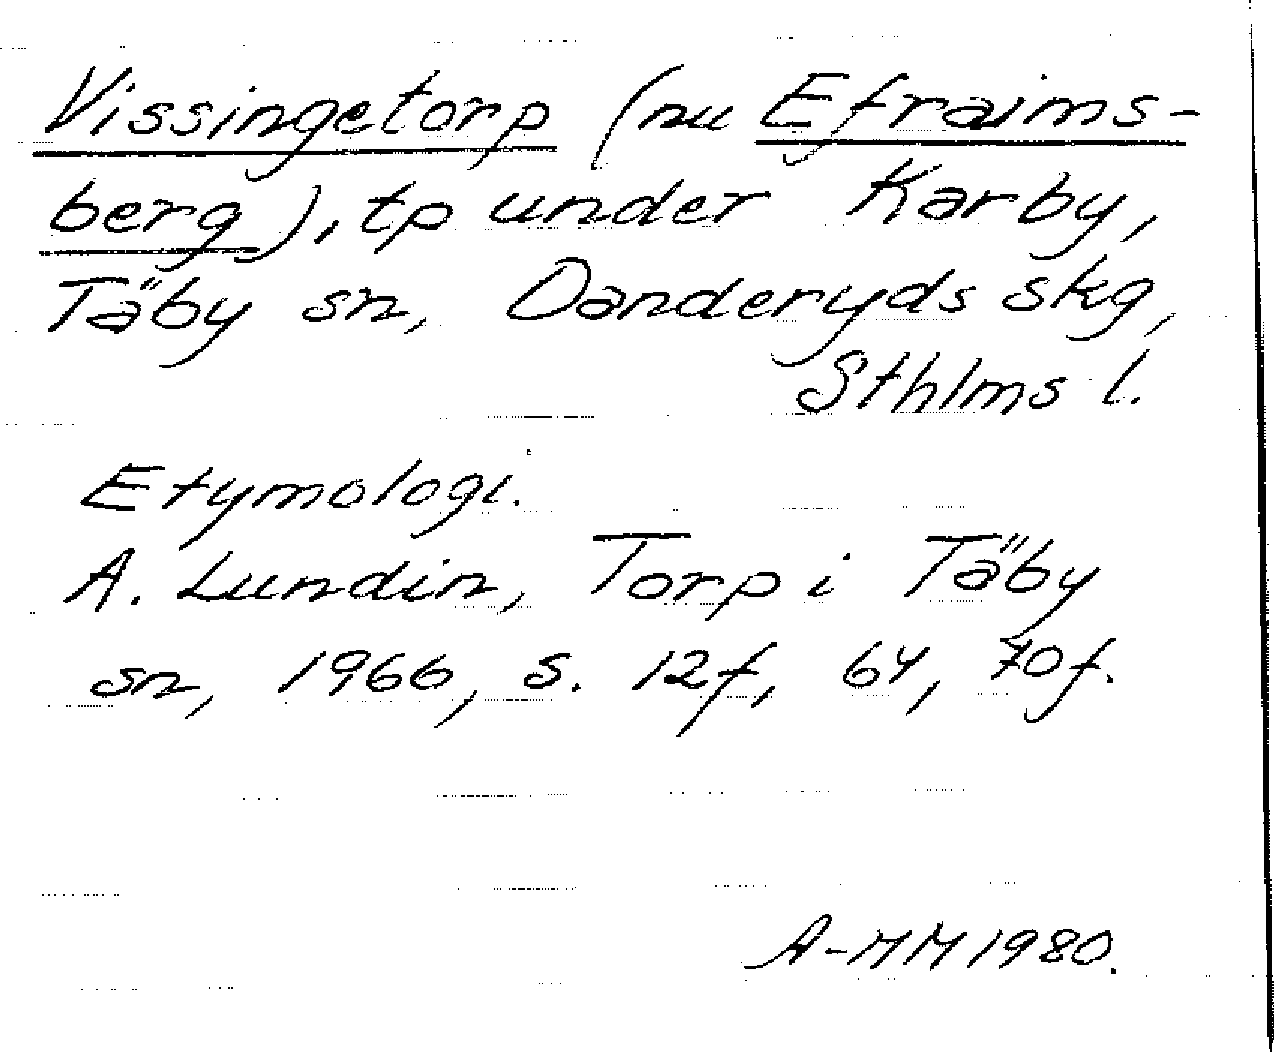 Vissingetorp (nu Efraims-
berg), tp under Karby,
Täby sn, Danderyds skg,
Sthlms l.
Etymologi.
A. Lundin, Torp i Täby
sn, 1966, s. 12f, 64, 70f.
A-MM 1980.